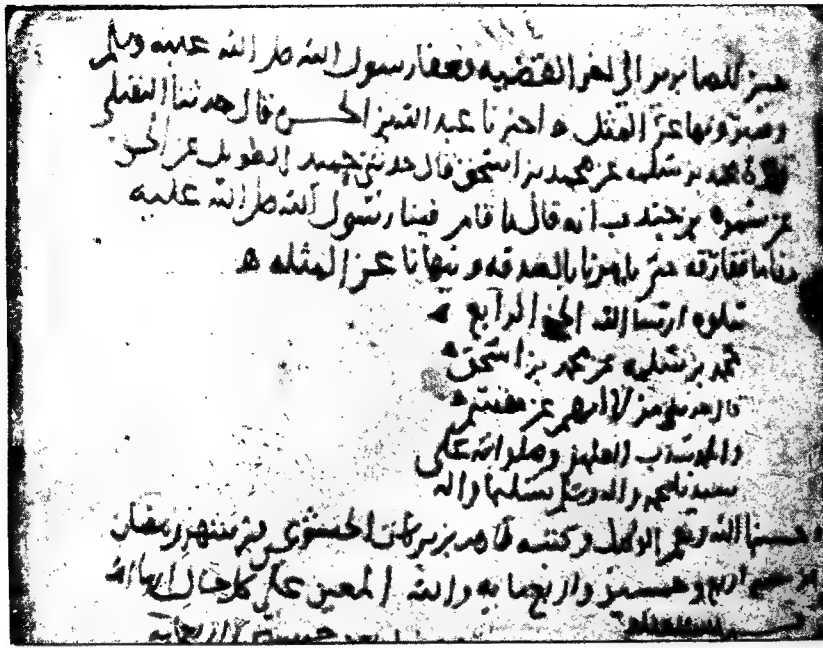 ١١٤
خير للصابرين الى اخر القصه فعفا رسول الله صلى الله عليه وسلم
وصبر ونها عن المثل ه اخبرنا عبد الله بن الحسن قال حدثنا النفيلي
محمد بن سلمه عن محمد بن اسحق قال حدثني حميد الطويل عن الحسن
عن سمره بن جندب انه قال ما قام فينا رسول الله صلى الله عليه
مقاما ففارقه حتى يامرنا بالصدقه وينهانا عن المثله ه
يتلوه ان شا الله الجز الرابع
محمد بن سلمه عن محمد بن اسحق
قال حدثني من لا اتهم عن مقسم
والحمد لله رب العلمين وصلواته على
سيدنا محمد واله وسلم تسليما
وحسبنا الله ونعم الوكيل وكتبه طاهر بن بركات الخشوعي في شهر رمضان
من سنه اربع وخمسين واربع مايه والله المعين على كل حال ان شا الله